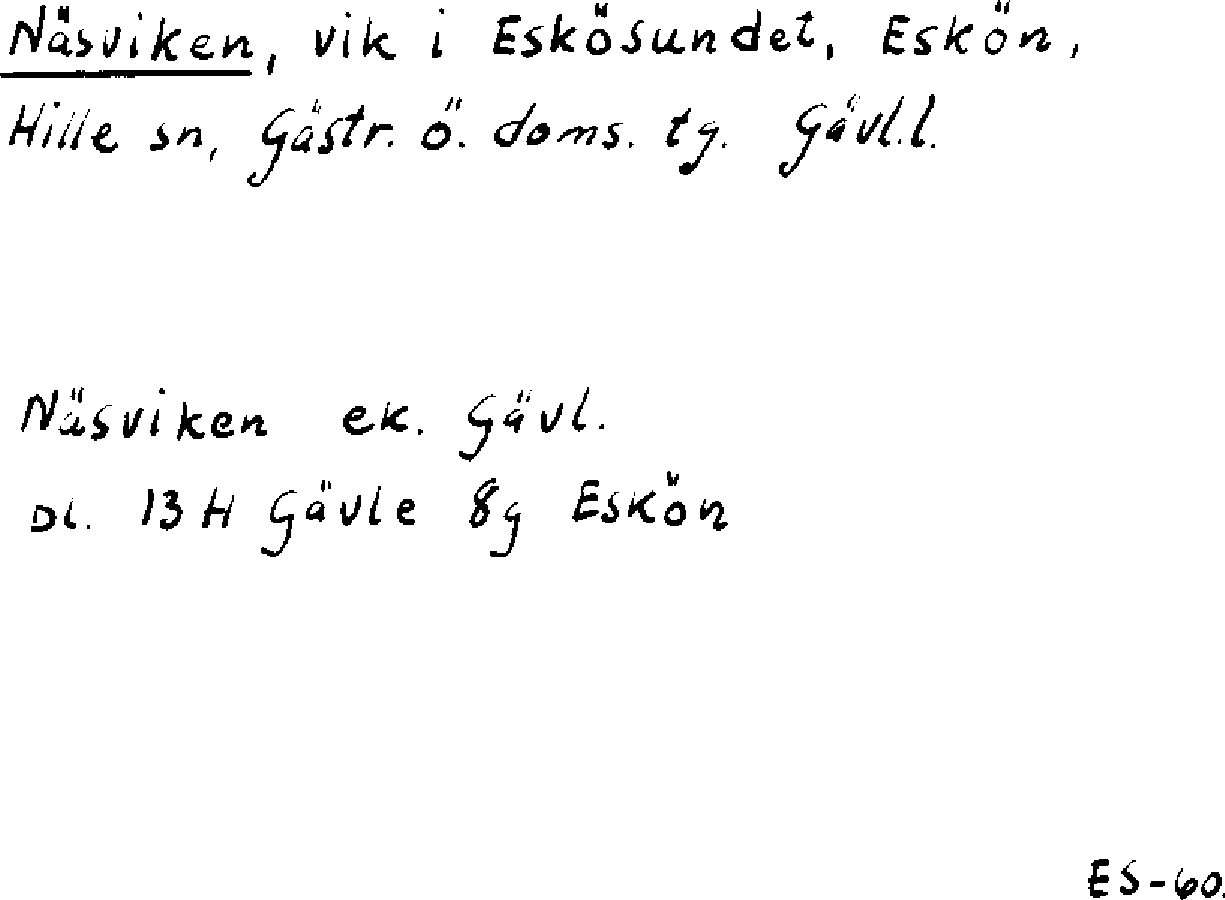 Näsviken, vik i Eskösundet, Eskön,
Hille sn, Gästr. ö. doms. tg. Gävl.l.
Näsviken ek. Gävl.
DL. 13 H Gävle 8g Eskön
ES-60.